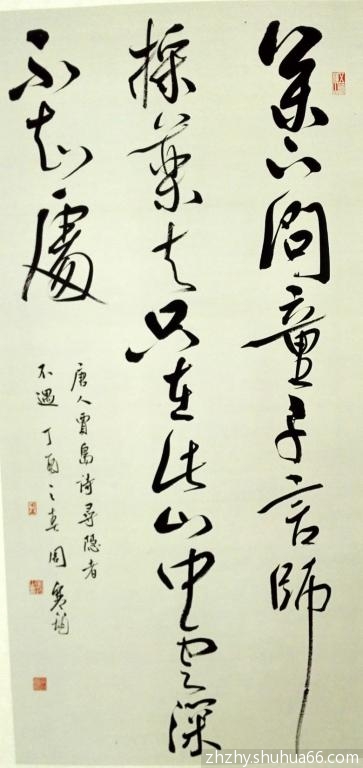 松下問童子言師
採藥去只在此山中雲深
不知處
唐人賈島詩尋隐者
不遇 丁酉之春 周
zhzhyshuhua66.com